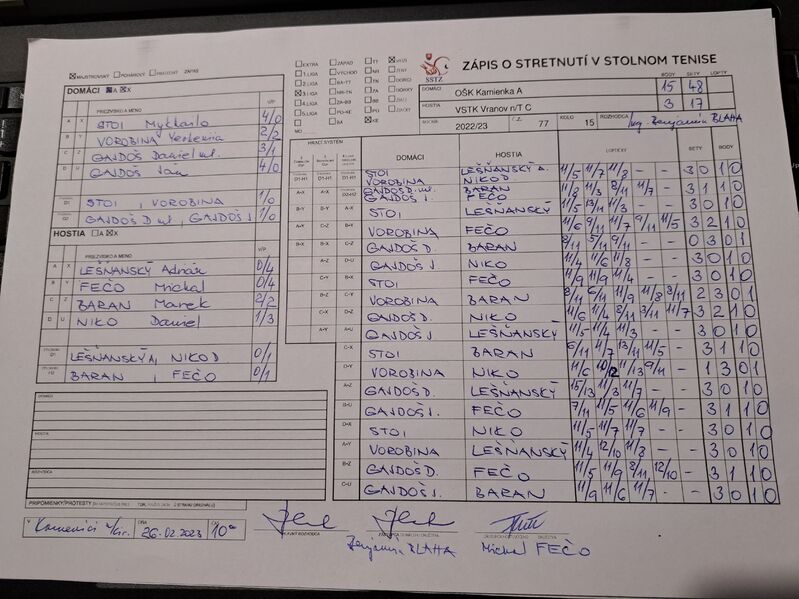 ZÁPIS O STRETNUTÍ V STOLNOM TENISE
SSTZ
MAJSTROVSKÝ POHÁROVÝ ZÁPAS
EXTRA
1.LIGA
2.LIGA
3.LIGA
4.LIGA
5.LIGA
6.LIGA
MO
ZÁPAD
VÝCHOD
BA-TT
NR-TN
ZA-BB
PO-KE
BA
KE
BODY SETY LOPTY
DOMÁCI OŠK Kamienka A 15 48
HOSTIA VSTK Vranov n/T C 3 17
ROČNÍK 2022/23 Č.Z. 77 KOLO 15 ROZHODCA Ing. Benjamín BLAHA
DOMÁCI A X
PRIEZVISKO A MENO V/P
A X STOI 4/0
B Y VOROBINA 2/2
C Z GAJDOŠ Daniel ml. 3/1
D U GAJDOŠ Ján 4/0
D1 STOI, VOROBINA 1/0
D2 GAJDOŠ D ml, GAJDOŠ J. 1/0
HOSTIA A X
PRIEZVISKO A MENO V/P
A X LEŠŇANSKÝ Adrián 0/4
B Y FEČO Michal 0/4
C Z BARAN Marek 2/2
D U NIKO Daniel 1/3
D1 LEŠŇANSKÝ A, NIKO D. 0/1
D2 BARAN, FEČO 0/1
HRACÍ SYSTÉM DOMÁCI HOSTIA LOPTIČKY SETY BODY
STOI VOROBINA LEŠŇANSKÝ A. NIKO D 11/5 11/7 11/8 - - 3 0 1 0
GAJDOŠ D. ml GAJDOŠ J. BARAN FEČO 11/8 11/3 8/11 11/7 - 3 1 1 0
STOI LEŠŇANSKÝ 11/5 13/11 11/3 - - 3 0 1 0
VOROBINA FEČO 11/6 9/11 11/7 9/11 11/5 3 2 1 0
GAJDOŠ D. BARAN 8/11 5/11 9/11 - - 0 3 0 1
GAJDOŠ J. NIKO 11/4 11/6 11/8 - - 3 0 1 0
STOI FEČO 11/9 11/9 11/4 - - 3 0 1 0
VOROBINA BARAN 8/11 6/11 11/9 11/8 3/11 2 3 0 1
GAJDOŠ D. NIKO 11/6 11/4 8/11 3/11 11/7 3 2 1 0
GAJDOŠ J LEŠŇANSKÝ 11/5 11/4 11/3 - - 3 0 1 0
STOI BARAN 6/11 11/7 13/11 11/5 - 3 1 1 0
VOROBINA NIKO 11/6 11/13 9/11 - 1 3 0 1
GAJDOŠ D. LEŠŇANSKÝ 15/13 11/3 11/7 - - 3 0 1 0
GAJDOŠ J. FEČO 7/11 11/5 11/6 11/9 - 3 1 1 0
STOI NIKO 11/5 11/7 11/7 - - 3 0 1 0
VOROBINA LEŠŇANSKÝ 11/4 12/10 11/3 - - 3 0 1 0
GAJDOŠ D. FEČO 11/5 11/9 8/11 12/10 - 3 1 1 0
GAJDOŠ J. BARAN 11/9 11/6 11/7 - - 3 0 1 0
DOMÁCI
HOSTIA
ROZHODCA
PRIPOMIENKY/PROTESTY
V DŇA 26.02.2023 10
HLAVNÝ ROZHODCA
Benjamín BLAHA Michal FEČO